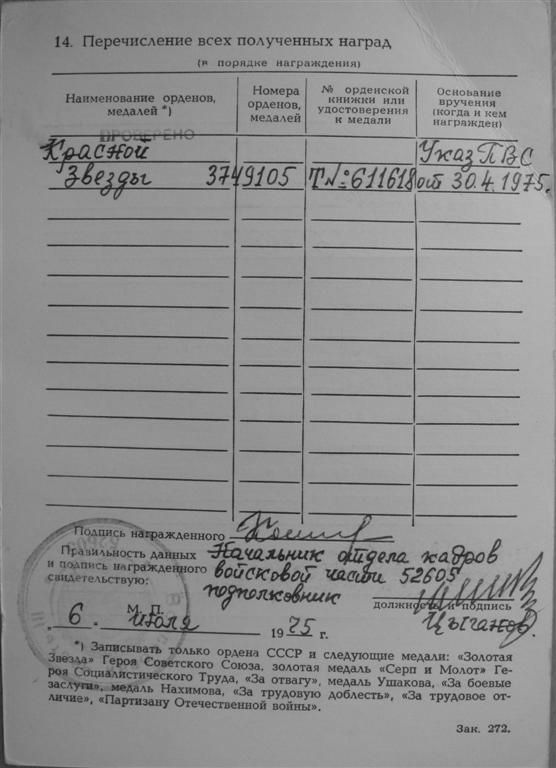 14. Перечисление всех полученных наград
(в порядке награждения)
Наименование орденов, медалей *)
Номера орденов, медалей
№ орденской книжки или удостоверения к медали
Основание вручения (когда и кем награжден)
ПРОВЕРЕНО
Красной Указ ПВС
Звезды 3749105 Т№611618 от 30.4.1975.
Подпись награжденного
Правильность данных Начальник отдела кадров
и подпись награжденного войсковой части 52605
свидетельствую: подполковник
должность и подпись
М. П. Цыганов.
„6." июля 1975 г.
*) Записывать только ордена СССР и следующие медали: «Золотая
Звезда» Героя Советского Союза, золотая медаль «Серп и Молот» Ге-
роя Социалистического Труда, «За отвагу», медаль Ушакова, «За боевые
заслуги», медаль Нахимова, «За трудовую доблесть», «За трудовое от-
личие», «Партизану Отечественной войны».
Зак. 272.